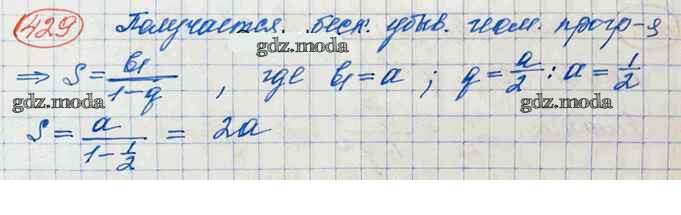 429 Получается беск. убыв. геом. прогр-я
gdz.moda gdz.moda
⇒ S = b₁/(1-q), где b₁ = a; q = a/2 : a = 1/2
gdz.moda gdz.moda
S = a/(1-1/2) = 2a